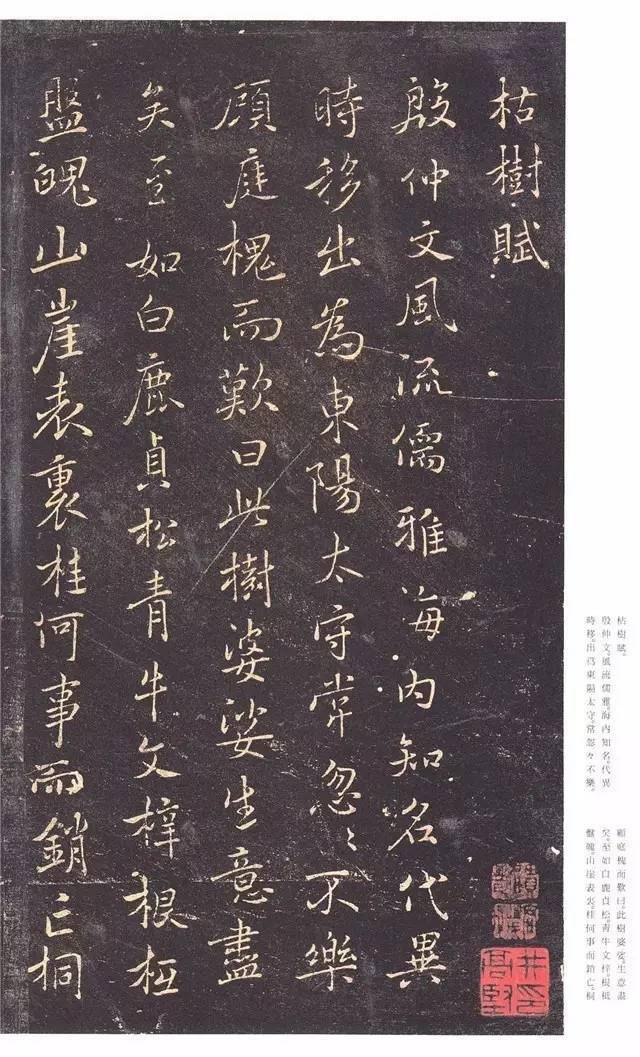 枯樹賦
殷仲文風流儒雅海內知名代異
時移出為東陽太守常忽〻不樂
顧庭槐而歎曰此樹婆娑生意盡
矣至如白鹿貞松青牛文梓根柢
盤魄山崖表裏桂何事而銷亡桐
枯樹賦。
殷仲文。風流儒雅。海內知名。代異
時移。出為東陽太守。常忽々不樂。
顧庭槐而歎曰。此樹婆娑。生意盡
矣。至如白鹿貞松。青牛文梓。根柢
盤魄。山崖表裏。桂何事而銷亡。桐